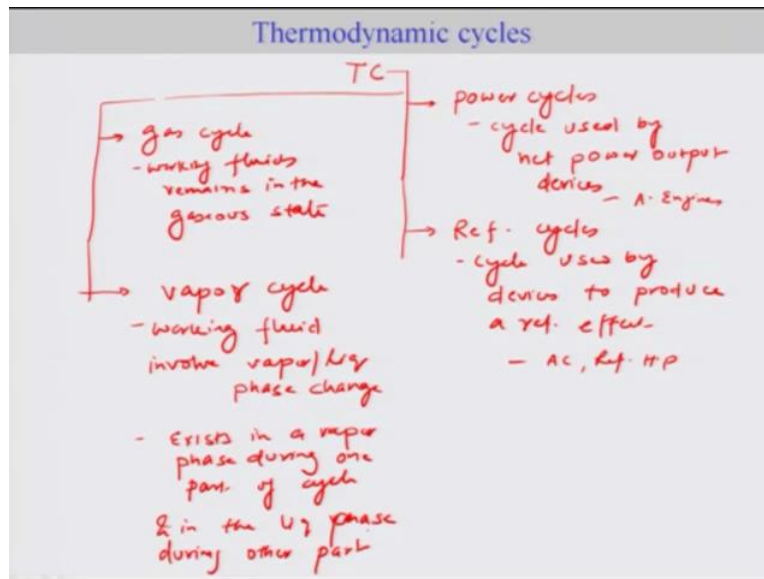 Thermodynamic cycles
TC
gas cycle
- working fluids
remains in the
gaseous state
vapor cycle
- working fluid
involve vapor/Liq
phase change
- Exists in a vapor
phase during one
part of cycle
& in the Liq phase
during other part
power cycles
- cycle used by
net power output
devices
- A. Engines
Ref. cycles
- cycle used by
devices to produce
a ref. effect
- AC, Ref. HP